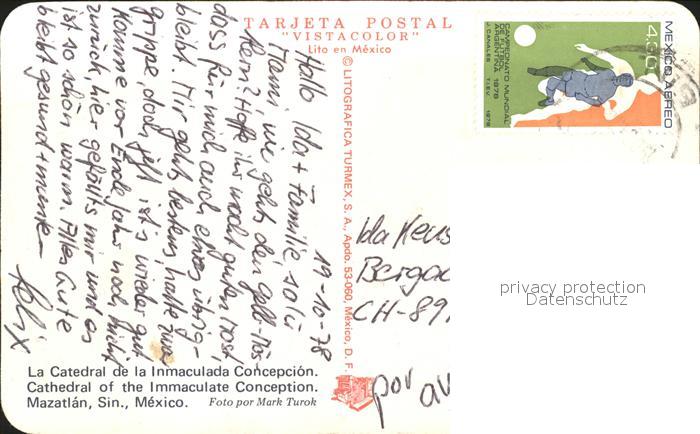 TARJETA POSTAL
"VISTACOLOR"
Lito en México
19-10-78
Hallo Ida + Familie
Mami wie geht's den
Hoffe ihr macht guten Most,
dass für mich auch etwas übrig-
bleibt. Mir geht's bestens, hatte zwar
grippe doch jetzt ist's wieder gut
Komme vor Ende Jahr noch nicht
zurück, hier gefällts mir und es
ist so schön warm. Alles Gute
bleibt gesund + munter –
Felix
© LITOGRAFICA TURMEX, S. A., Apdo. 53-060, México, D. F.
MEXICO AEREO
4.30
CAMPEONATO MUNDIAL
DE FUTBOL
ARGENTINA 1978
J. CANALES T.I.E.V. 1978
Ida
CH-89
por av
privacy protection
Datenschutz
La Catedral de la Inmaculada Concepción.
Cathedral of the Immaculate Conception.
Mazatlán, Sin., México. Foto por Mark Turok